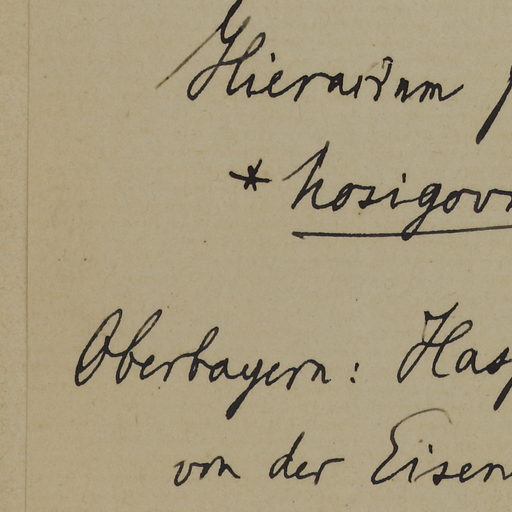 Hieracium
* hosigov
Oberbayern: Has
von der Eisen